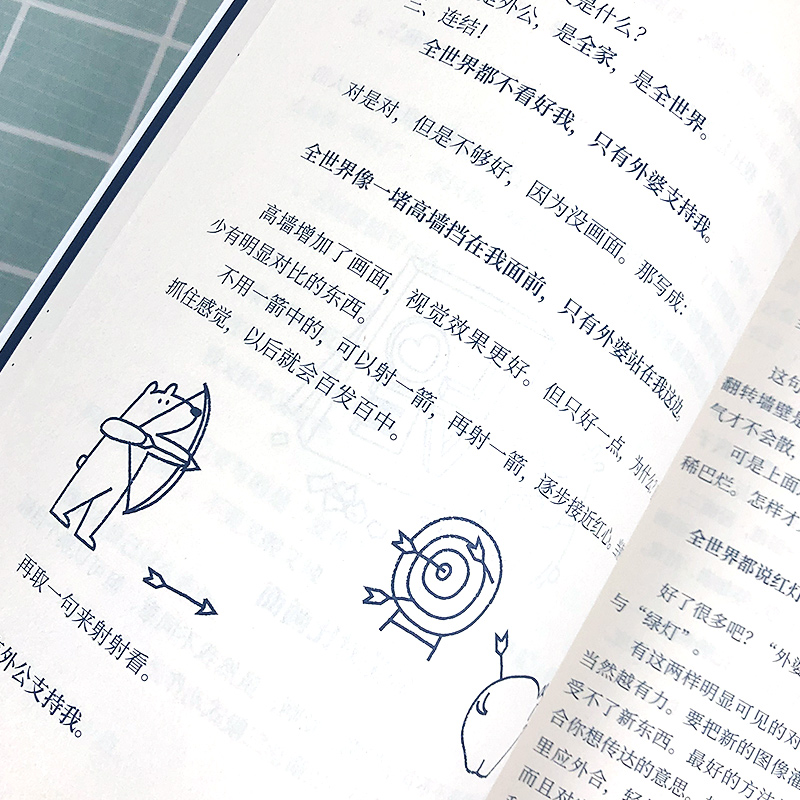 是什么？
是外公，是全家，是全世界。
三、连结！
全世界都不看好我，只有外婆支持我。
对是对，但是不够好，因为没画面。那写成：
全世界像一堵高墙挡在我面前，只有外婆站在我这边。
高墙增加了画面，视觉效果更好。但只好一点，为什么
少有明显对比的东西。
不用一箭中的，可以射一箭，再射一箭，逐步接近红心。
抓住感觉，以后就会百发百中。
再取一句来射射看。
外公支持我。
这句
翻转墙壁是
气才不会散，
可是上面
稀巴烂。怎样才
全世界都说红灯
好了很多吧？“外婆
与“绿灯”。
有这两样明显可见的对
当然越有力。要把新的图像灌
受不了新东西。最好的方法
合你想传达的意思。
里应外合，轻
而且对